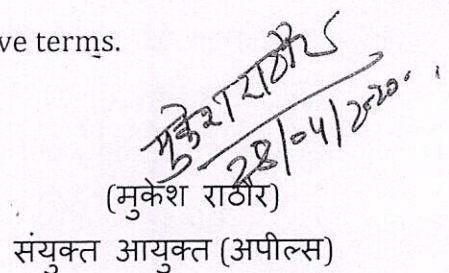 ve terms.
मुकेश राठौर
28/04/2020.
(मुकेश राठौर)
संयुक्त आयुक्त (अपील्स)